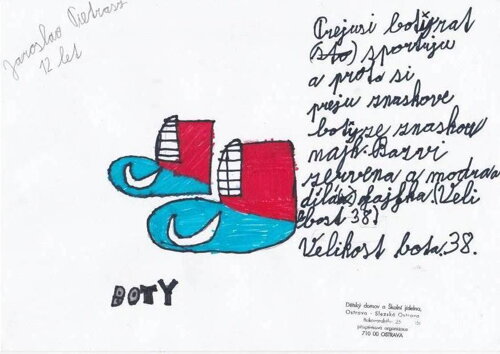 Jaroslav Pietrasz
12 let
Prejusi botižrat
(sto) sportuju
a proto si
preju znaskove
boty ze znaskou
najk. Barvi
zervena a modrava
bílá fajfka. (Veli
kost 38)
Velikost bota. 38.
BOTY
Dětský domov a Školní jídelna,
Ostrava - Slezská Ostrava
příspěvková organizace
710 00 OSTRAVA